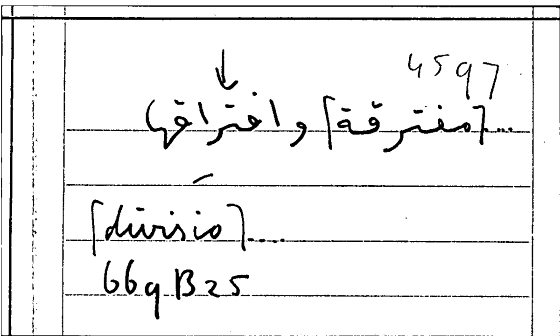 4597
...[مفترقة] و افتراقها
[divisio]....
669 B 25